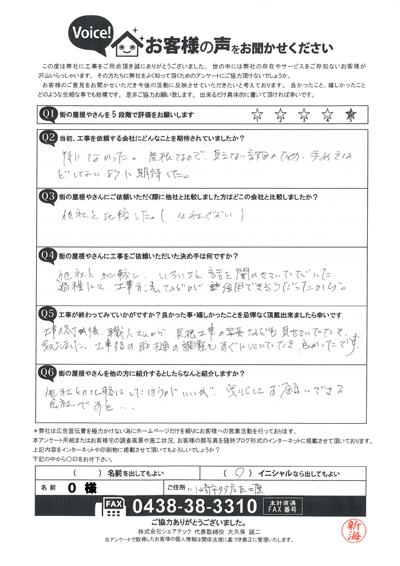 Voice!
お客様の声をお聞かせください
この度は弊社に工事をご用命頂き誠にありがとうございました。世の中には弊社の存在やサービスをご存知ないお客様が
沢山いらっしゃいます。その方たちに弊社をよく知って頂くためのアンケートにご協力頂けないでしょうか。
お客様のご意見をお聞かせいただき今後の活動に反映させていただきたいと考えております。良かったこと、嬉しかったこと
どのような些細な事でも結構です。是非ご協力お願い致します。出来るだけ具体的に書いて頂ければ幸いです。
Q1 街の屋根やさんを5段階で評価をお願いします
Q2 当初、工事を依頼する会社にどんなことを期待されていましたか?
特になかった。屋根なので、見えない部分のため、手ぬきは
どしてないように期待した。
Q3 街の屋根やさんにご依頼いただく際に他社と比較しました方はどこの会社と比較しましたか?
他社と比較した。(4社ぐらい)
Q4 街の屋根やさんに工事をご依頼いただいた決め手は何ですか?
他社と比較し、いろいろと話を聞かせていただいた
Q5 工事が終わってみていかがですか?良かった事・嬉しかったことを忌憚なく頂戴出来ましたら幸いです
工事終了後、職人さんから、屋根工事の写真なども見せていただき、
安心しました。工事後の
すぐにしていただき良かったです。
Q6 街の屋根やさんを他の方に紹介するとしたらなんと紹介しますか?
他社との比較はしたほうがいいが、安心してお願いできる
会社ですと...
*弊社は広告宣伝費を極力かけない為にホームページだけを頼りにお客様への営業活動を行っております。
本アンケート用紙またはお客様宅の調査風景や施工状況、お客様の顔写真を随時ブログ形式のインターネットに掲載させて頂いております。
上記内容をインターネットや印刷物に掲載させて頂いてもよろしいでしょうか?
下記の中から○印をお付下さい。
( )名前を出してもよい (○)イニシャルなら出してもよい
名前 O 様 ご住所
FAX 0438-38-3310 本社直通FAX番号
ご協力ありがとうございました。
株式会社シェアテック 代表取締役 大久保 誠二
当アンケートで取得したお客様の個人情報は関係法規に基づき厳正に管理いたします。
新海